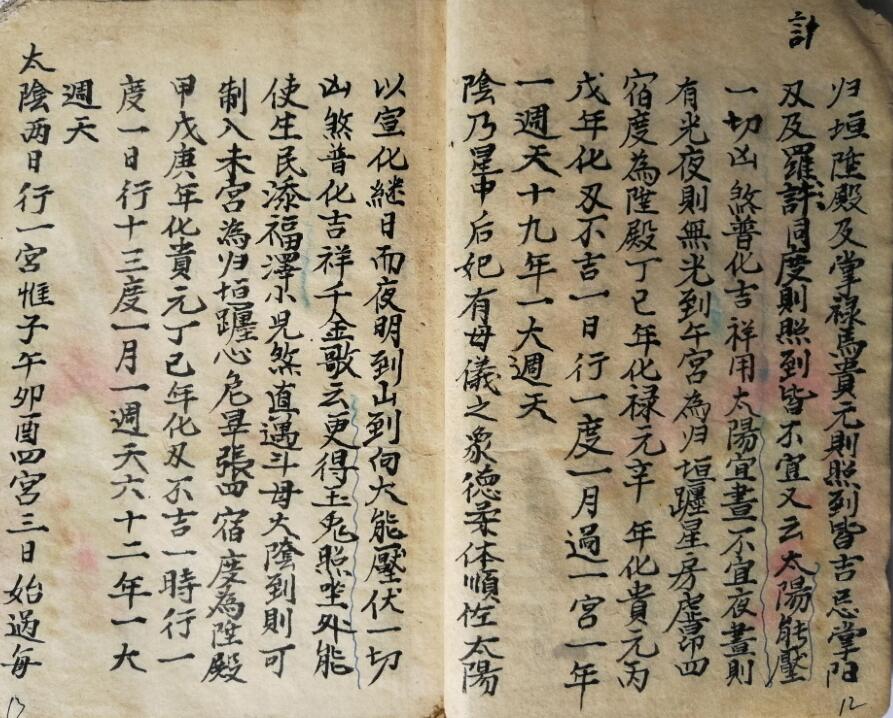 計
归垣陞殿及掌禄馬貴元則照到皆吉忌掌阳
刄及羅計同度則照到皆不宜又云太陽能壓
一切凶煞普化吉祥用太陽宜晝不宜夜晝則
有光夜則無光到午宮為归垣躔星房虚昴四
宿度為陞殿丁巳年化禄元辛年化貴元丙
戊年化刄不吉一日行一度一月過一宮一年
一週天十九年一大週天
陰乃星中后妃有母儀之象德柔体順佐太陽
12
以宣化継日而夜明到山到向大能壓伏一切
凶煞普化吉祥千金歌云更得玉兎照坐处能
使生民添福澤小児煞直遇斗母太陰到則可
制入未宮為归垣躔心危畢張四宿度為陞殿
甲戊庚年化貴元丁巳年化刄不吉一時行一
度一日行十三度一月一週天六十二年一大
週天
太陰两日行一宮惟子午卯酉四宮三日始過每
13